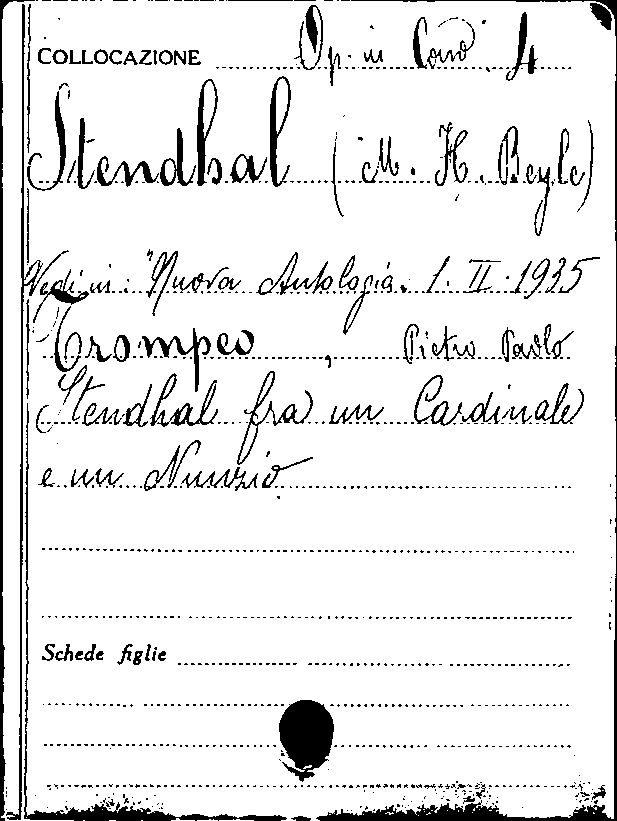 COLLOCAZIONE Op. in Cons. 4
Stendhal (M. H. Beyle)
Vedi in: "Nuova Antologia. 1. II. 1935
Trompeo, Pietro Paolo
Stendhal fra un Cardinale
e un Nunzio.
Schede figlie